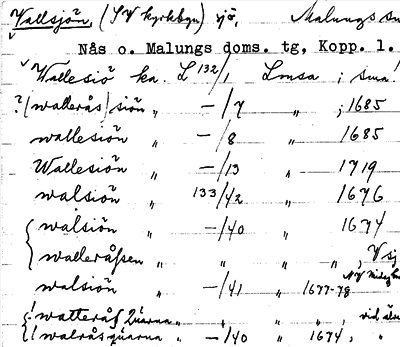 Vallsjön, (SV kyrkbyn) sjö, Malungs
Nås o. Malungs doms. tg, Kopp. l.
Wallesiö ka. L 132/1 Lmsa ; sma!
?(wallerås)siön " —/7 " ; 1685
wallesiön " —/8 " 1685
Wallesiön " —/13 " 1719
walsiön " 133/42 " 1676
walsiön " —/40 " 1674
walleråssen " " " " , V sj
walsiön " —/41 " 1677-78
! walleråß Quarna " " " " , vid
! walrås quarna " —/40 " 1674, "